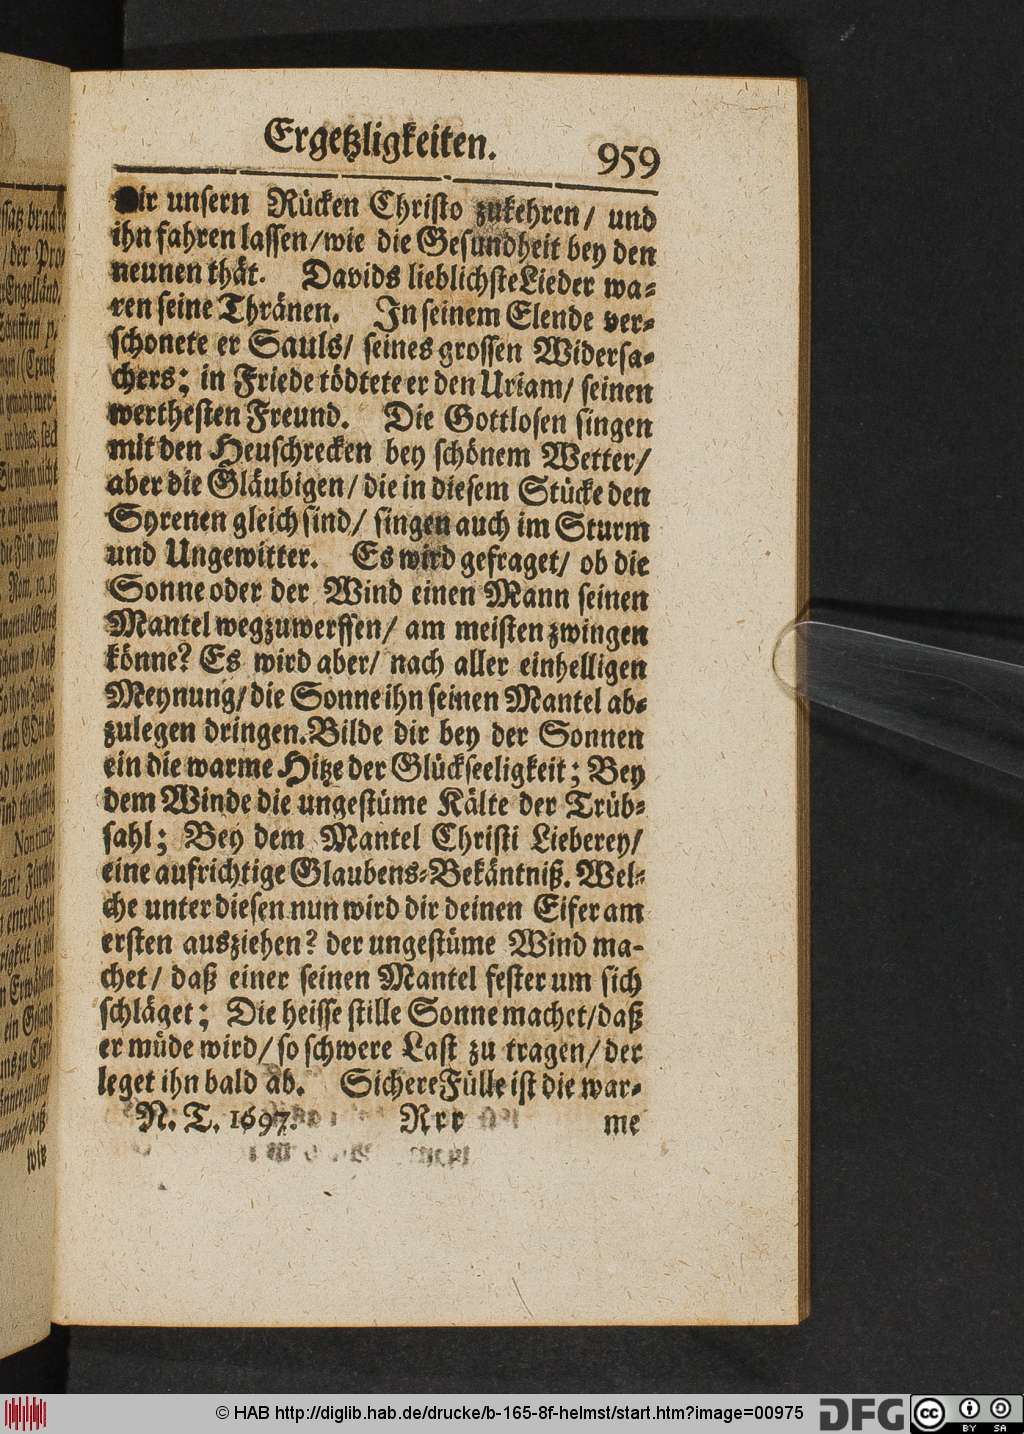 Ergetzligkeiten. 959
wir unsern Rücken Christo zukehren/ und
ihn fahren lassen/wie die Gesundheit bey den
neunen thät. Davids lieblichste Lieder wa-
ren seine Thränen. In seinem Elende ver-
schonete er Sauls/ seines grossen Widersa-
chers; in Friede tödtete er den Uriam/ seinen
werthesten Freund. Die Gottlosen singen
mit den Heuschrecken bey schönem Wetter/
aber die Gläubigen/ die in diesem Stücke den
Syrenen gleich sind/ singen auch im Sturm
und Ungewitter. Es wird gefraget/ ob die
Sonne oder der Wind einen Mann seinen
Mantel wegzuwerffen/ am meisten zwingen
könne? Es wird aber/ nach aller einhelligen
Meynung/ die Sonne ihn seinen Mantel ab-
zulegen dringen. Bilde dir bey der Sonnen
ein die warme Hitze der Glückseeligkeit; Bey
dem Winde die ungestüme Kälte der Trüb-
sahl; Bey dem Mantel Christi Lieberey/
eine aufrichtige Glaubens-Bekäntniß. Wel-
che unter diesen nun wird dir deinen Eifer am
ersten ausziehen? der ungestüme Wind ma-
chet/ daß einer seinen Mantel fester um sich
schläget; Die heisse stille Sonne machet/daß
er müde wird/ so schwere Last zu tragen/ der
leget ihn bald ab. Sichere Fülle ist die war-
N. T. 1697. Rrr me
© HAB http://diglib.hab.de/drucke/b-165-8f-helmst/start.htm?image=00975 DFG cc BY SA